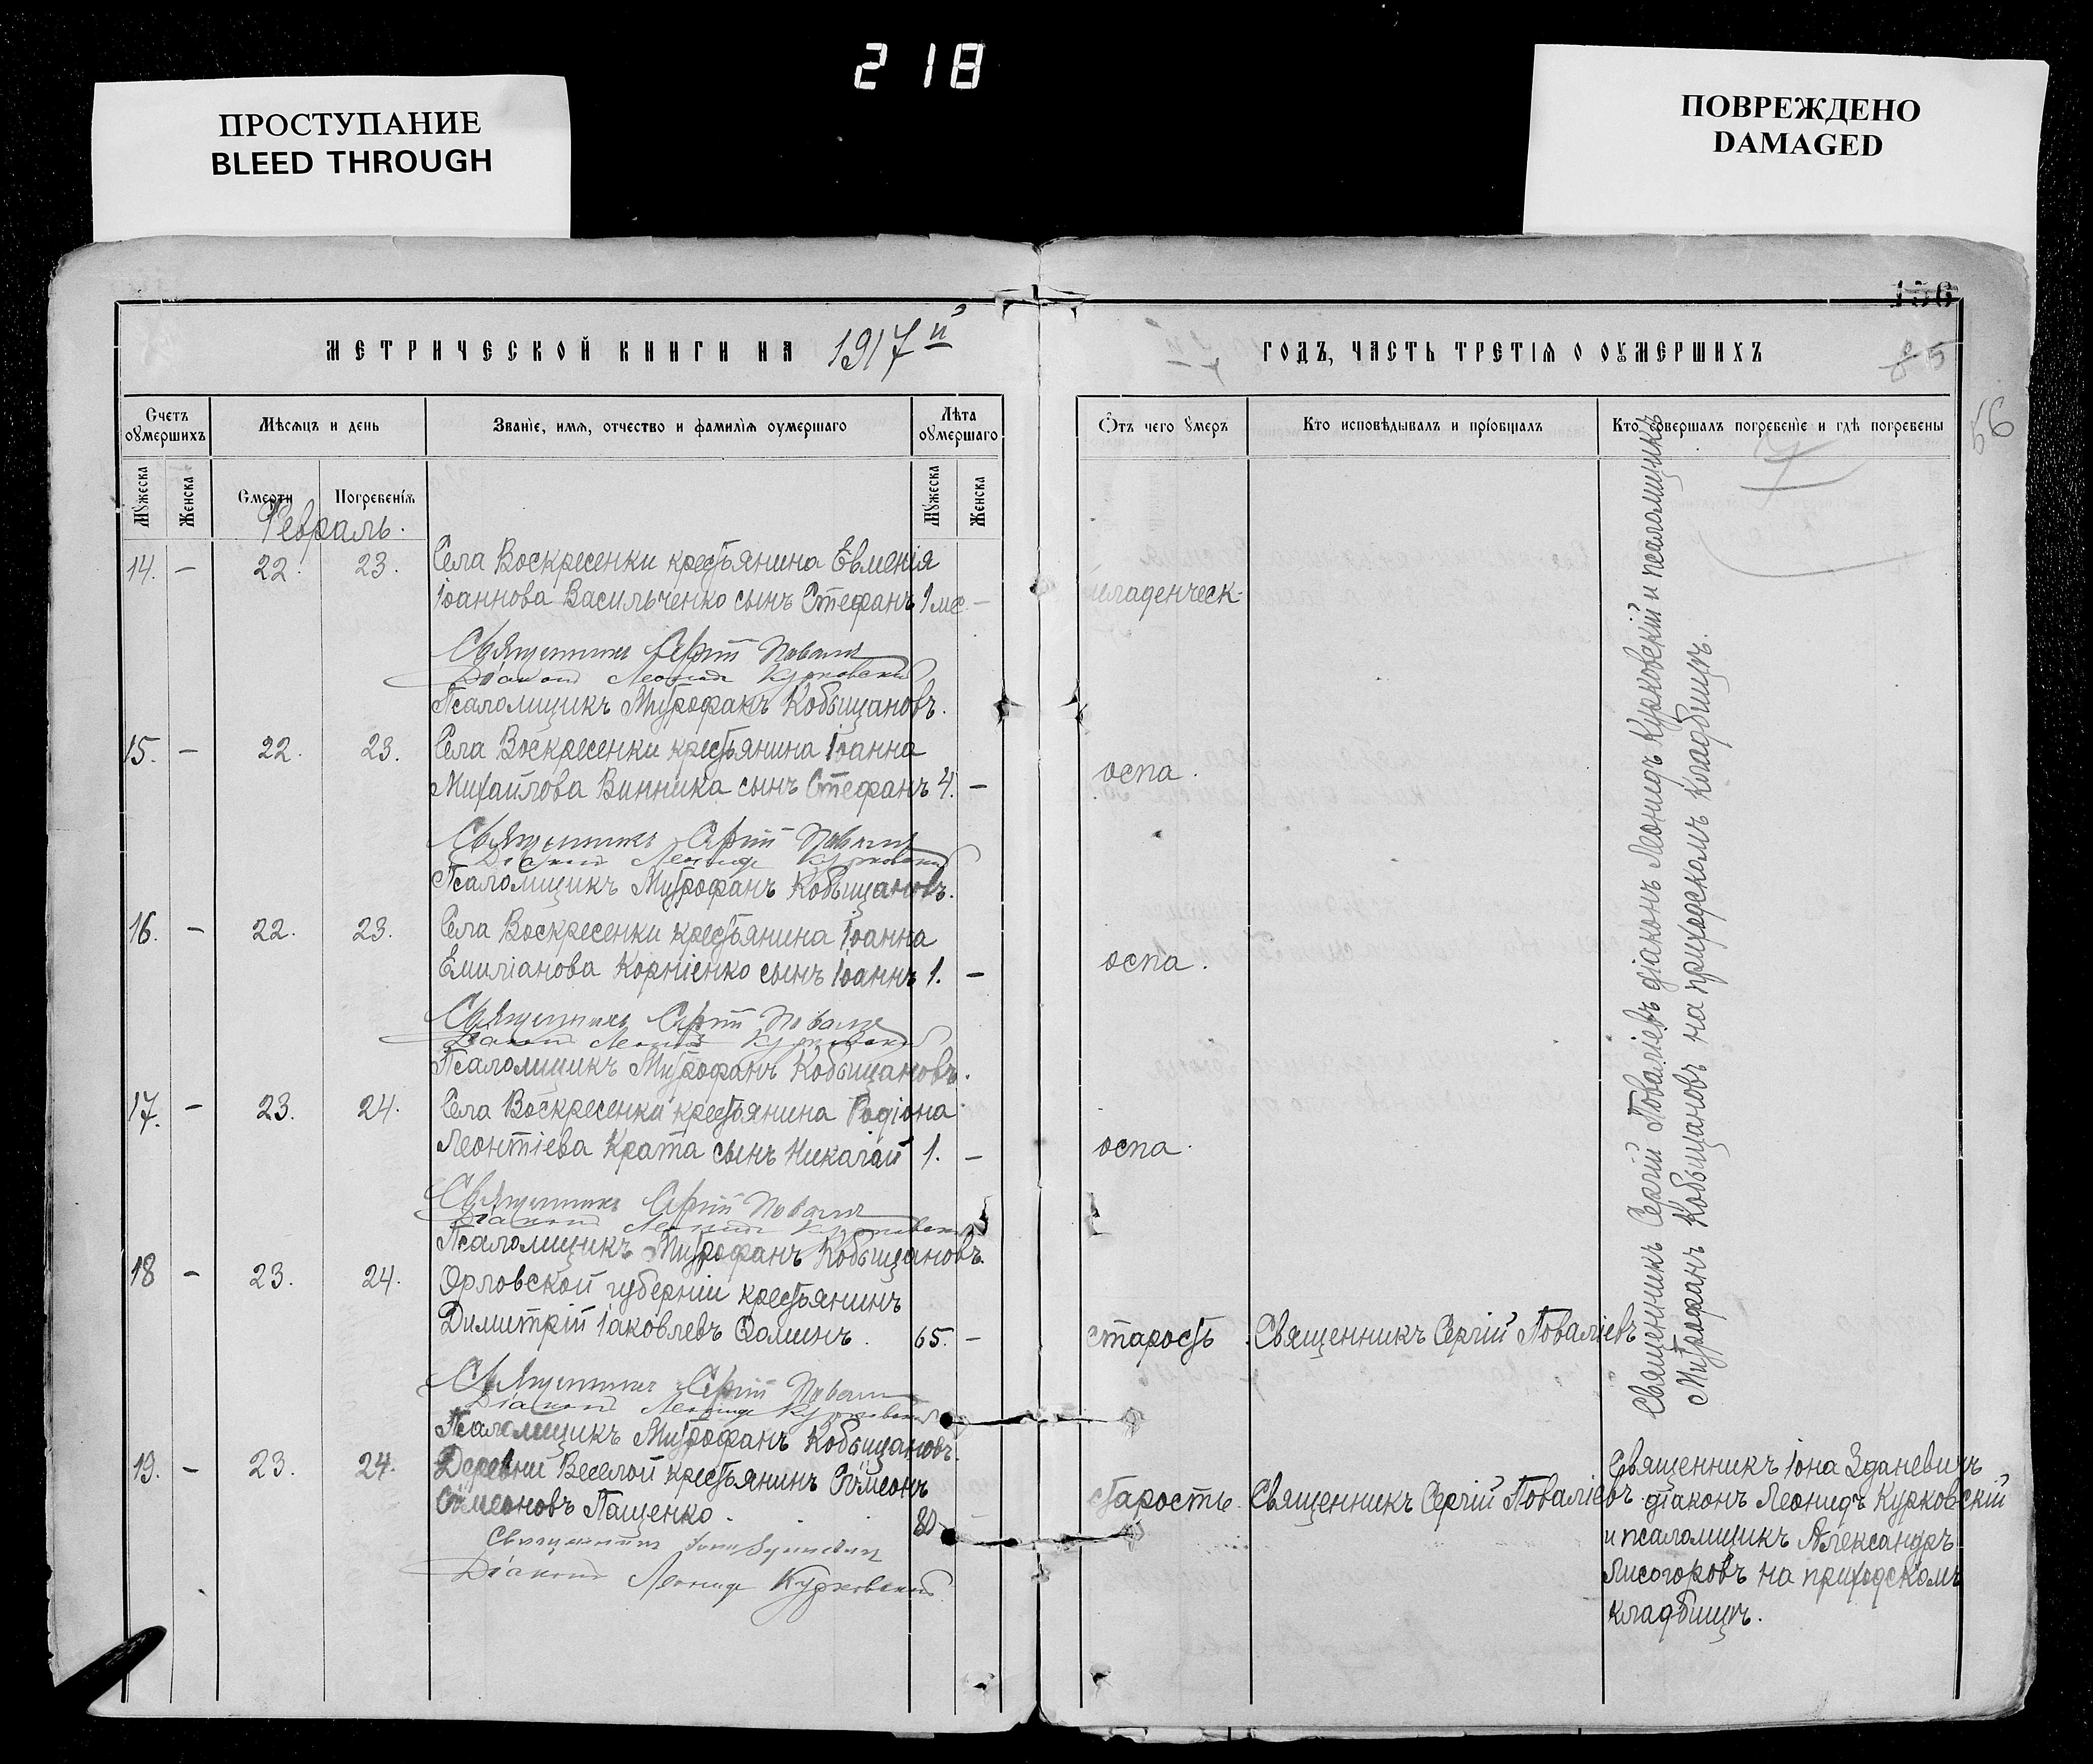 218
ПРОСТУПАНИЕ
BLEED THROUGH
ПОВРЕЖДЕНО
DAMAGED
156
МЕТРИЧЕСКОЙ КНИГИ НА 1917 й
ГОДЪ, ЧАСТЬ ТРЕТІѦ О ОУМЕРШИХЪ
85
56
Счетъ оумершихъ
Мѣсяцъ и день
Званіе, имя, отчество и фамилія оумершаго
Лѣта оумершаго
Мужеска
Женска
Смерти
Погребенія
Мужеска
Женска
Отъ чего умеръ
Кто исповѣдывалъ и пріобщалъ
Кто совершалъ погребеніе и гдѣ погребены
Февраль.
14. — 22. 23. Села Воскресенки крестьянина Евменія
Іоаннова Васильченко сынъ Стефанъ 1 мѣс — младенческ.
Священникъ Сергій
Діаконъ Леонидъ Курковскій
Псаломщикъ Митрофанъ Кобыщановъ.
15. — 22. 23. Села Воскресенки крестьянина Іоанна
Михайлова Винника сынъ Стефанъ 4. — оспа.
Священникъ Сергій
Діаконъ Леонидъ Курковскій
Псаломщикъ Митрофанъ Кобыщановъ.
16. — 22. 23. Села Воскресенки крестьянина Іоанна
Емиліанова Корніенко сынъ Іоаннъ 1. — оспа.
Священникъ Сергій
Діаконъ Леонидъ Курковскій
Псаломщикъ Митрофанъ Кобыщановъ.
17. — 23. 24. Села Воскресенки крестьянина Родіона
Леонтіева Крата сынъ Николай 1. — оспа.
Священникъ Сергій
Діаконъ Леонидъ Курковскій
Псаломщикъ Митрофанъ Кобыщановъ.
18 — 23. 24. Орловской губерніи крестьянинъ
Димитрій Іаковлевъ 65. — старость Священникъ Сергій Поваліевъ
Священникъ Сергій
Діаконъ Леонидъ Курковскій
Псаломщикъ Митрофанъ Кобыщановъ.
Священникъ Сергій Поваліевъ діаконъ Леонидъ Курковскій и псаломщикъ
Митрофанъ Кобыщановъ на приходскомъ кладбищѣ.
19. — 23. 24. Деревни Веселой крестьянинъ Сѵмеонъ
Сѵмеоновъ Пащенко. 80 старость. Священникъ Сергій Поваліевъ.
Священникъ Іона Зданевичъ
Діаконъ Леонидъ Курковскій
Священникъ Іона Зданевичъ
діаконъ Леонидъ Курковскій
и псаломщикъ Александръ
Лисогоровъ на приходскомъ
кладбищѣ.